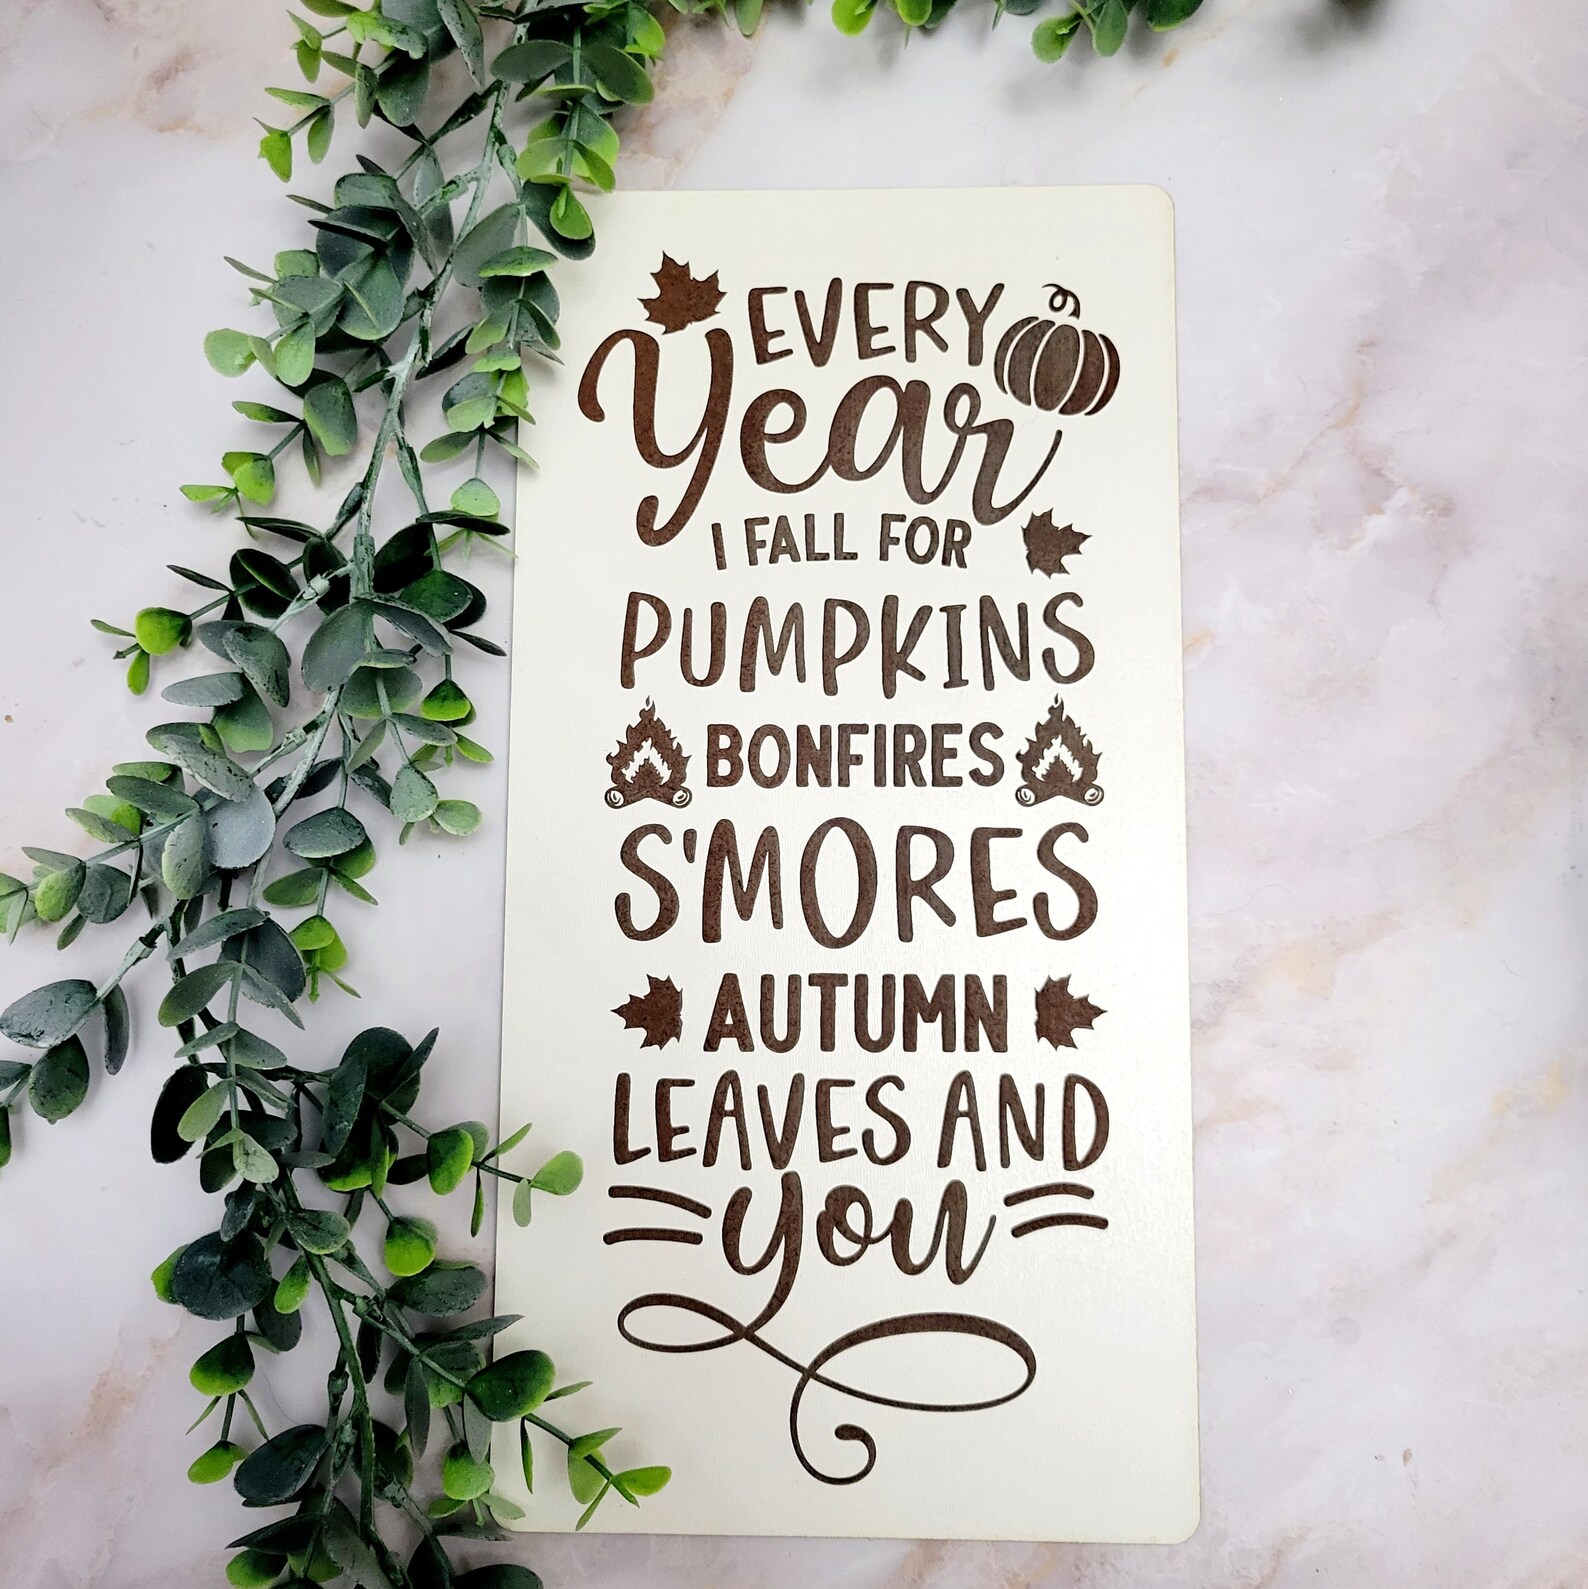 EVERY
Year
I FALL FOR
PUMPKINS
BONFIRES
S'MORES
AUTUMN
LEAVES AND
you